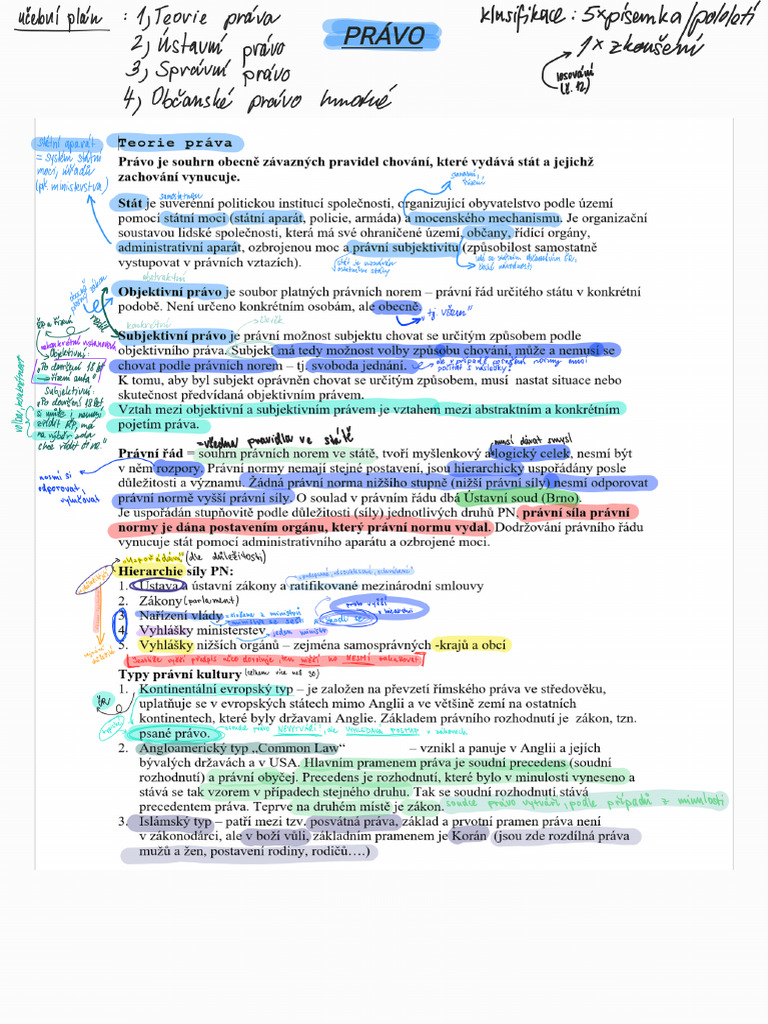 učební plán : 1, Teorie práva
2, Ústavní právo
3, Správní právo
4, Občanské právo hmotné
PRÁVO
klasifikace: 5x písemka/pololetí
1x zkoušení
losování
(ř. 12)
státní aparát
= systém státní
moci, úřadů
(př. ministerstva)
Teorie práva
Právo je souhrn obecně závazných pravidel chování, které vydává stát a jejichž
zachování vynucuje.
Stát je suverénní politickou institucí společnosti, organizující obyvatelstvo podle území
pomocí státní moci (státní aparát, policie, armáda) a mocenského mechanismu. Je organizační
soustavou lidské společnosti, která má své ohraničené území, občany, řídící orgány,
administrativní aparát, ozbrojenou moc a právní subjektivitu (způsobilost samostatně
vystupovat v právních vztazích).
abstraktní
Objektivní právo je soubor platných právních norem – právní řád určitého státu v konkrétní
podobě. Není určeno konkrétním osobám, ale obecně.
tj. všem"
konkrétní
člověk
Subjektivní právo je právní možnost subjektu chovat se určitým způsobem podle
objektivního práva. Subjekt má tedy možnost volby způsobu chování, může a nemusí se
chovat podle právních norem – tj. svoboda jednání.
K tomu, aby byl subjekt oprávněn chovat se určitým způsobem, musí nastat situace nebo
skutečnost předvídaná objektivním právem.
Vztah mezi objektivní a subjektivním právem je vztahem mezi abstraktním a konkrétním
pojetím práva.
Objektivní:
„Po dovršení 18 let
řízení auta"
Subjektivní:
„Po dovršení 18 let,
si může i nemusí
zřídit ŘP, má
na výběr zda
chce řídit či ne"
=všechna pravidla ve státě
musí dávat smysl
Právní řád = souhrn právních norem ve státě, tvoří myšlenkový a logický celek, nesmí být
v něm rozpory. Právní normy nemají stejné postavení, jsou hierarchicky uspořádány posle
důležitosti a významu. Žádná právní norma nižšího stupně (nižší právní síly) nesmí odporovat
právní normě vyšší právní síly. O soulad v právním řádu dbá Ústavní soud (Brno).
Je uspořádán stupňovitě podle důležitosti (síly) jednotlivých druhů PN, právní síla právní
normy je dána postavením orgánu, který právní normu vydal. Dodržování právního řádu
vynucuje stát pomocí administrativního aparátu a ozbrojené moci.
nesmí si
odporovat,
vylučovat
„Uspořádává" (dle důležitosti)
Hierarchie síly PN:
1. Ústava a ústavní zákony a ratifikované mezinárodní smlouvy
2. Zákony (parlament)
3. Nařízení vlády
4. Vyhlášky ministerstev
jeden ministr
5. Vyhlášky nižších orgánů – zejména samosprávných -krajů a obcí
Jestliže vyšší předpis něco dovoluje, ten nižší ho NESMÍ zakazovat
Typy právní kultury (celkem více než 30)
1. Kontinentální evropský typ – je založen na převzetí římského práva ve středověku,
uplatňuje se v evropských státech mimo Anglii a ve většině zemí na ostatních
kontinentech, které byly državami Anglie. Základem právního rozhodnutí je zákon, tzn.
psané právo.
soudce právo NEVYTVÁŘÍ, ale VYHLEDÁVÁ POSTUP v zákonech
2. Angloamerický typ „Common Law“ – vznikl a panuje v Anglii a jejích
bývalých državách a v USA. Hlavním pramenem práva je soudní precedens (soudní
rozhodnutí) a právní obyčej. Precedens je rozhodnutí, které bylo v minulosti vyneseno a
stává se tak vzorem v případech stejného druhu. Tak se soudní rozhodnutí stává
precedentem práva. Teprve na druhém místě je zákon.
soudce právo vytváří, podle případů z minulosti
3. Islámský typ – patří mezi tzv. posvátná práva, základ a prvotní pramen práva není
v zákonodárci, ale v boží vůli, základním pramenem je Korán (jsou zde rozdílná práva
mužů a žen, postavení rodiny, rodičů….)